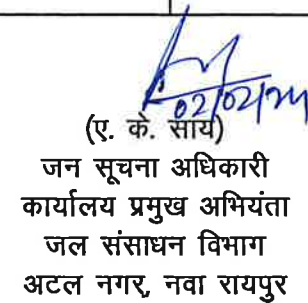 02/02/24
(ए. के. साय)
जन सूचना अधिकारी
कार्यालय प्रमुख अभियंता
जल संसाधन विभाग
अटल नगर, नवा रायपुर